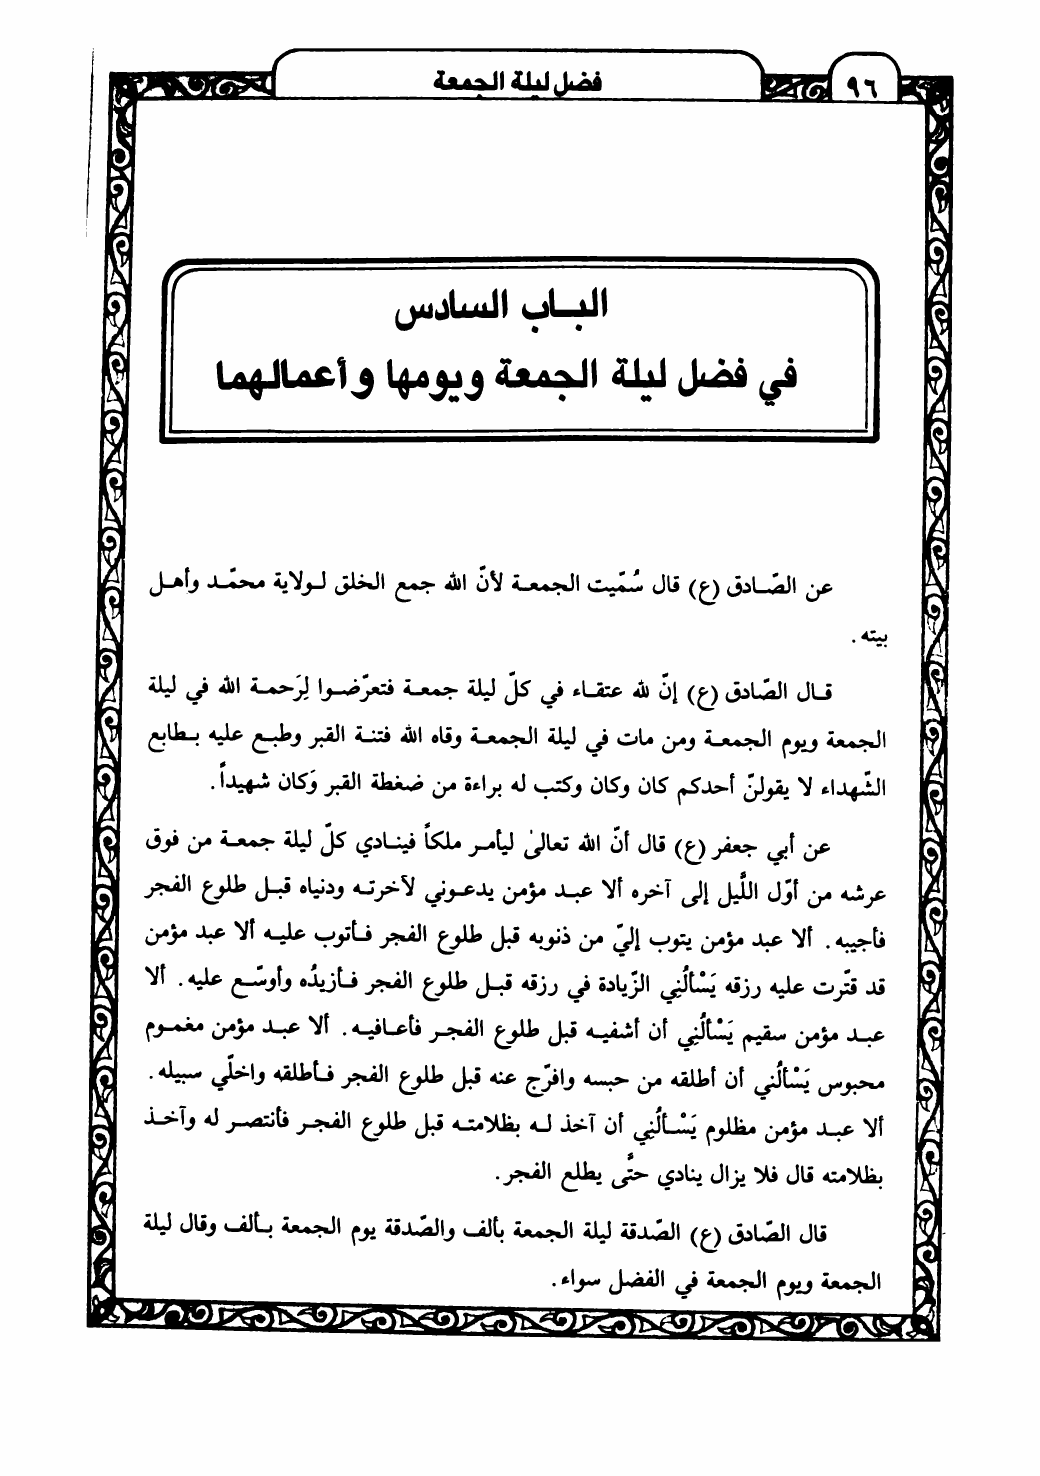 ٩٦
فضل ليلة الجمعة
البـاب السادس
في فضل ليلة الجمعة ويومها وأعمالهما
عن الصّادق (ع) قال سُمّيت الجمعة لأنّ الله جمع الخلق لولاية محمّد وأهل
بيته .
قال الصّادق (ع) إنّ لله عتقاء في كلّ ليلة جمعة فتعرّضوا لِرَحمة الله في ليلة
الجمعة ويوم الجمعة ومن مات في ليلة الجمعة وقاه الله فتنة القبر وطبع عليه بطابع
الشّهداء لا يقولنّ أحدكم كان وكان وكتب له براءة من ضغطة القبر وَكان شهيداً .
عن أبي جعفر (ع) قال أنّ الله تعالىٰ ليأمر ملكاً فينادي كلّ ليلة جمعة من فوق
عرشه من أوّل اللَّيل إلى آخره ألا عبد مؤمن يدعوني لآخرته ودنياه قبل طلوع الفجر
فأجيبه . ألا عبد مؤمن يتوب إليّ من ذنوبه قبل طلوع الفجر فأتوب عليه ألا عبد مؤمن
قد قتّرت عليه رزقه يَسْألُنِي الزّيادة في رزقه قبل طلوع الفجر فأزيدُه وأوسّع عليه . ألا
عبد مؤمن سقيم يَسْألُنِي أن أشفيه قبل طلوع الفجر فأعافيه . ألا عبد مؤمن مغموم
محبوس يَسْألُني أن أطلقه من حبسه وافرّج عنه قبل طلوع الفجر فأطلقه واخلّي سبيله .
ألا عبد مؤمن مظلوم يَسْألُنِي أن آخذ له بظلامته قبل طلوع الفجر فأنتصر له وآخذ
بظلامته قال فلا يزال ينادي حتَّى يطلع الفجر .
قال الصّادق (ع) الصّدقة ليلة الجمعة بألف والصّدقة يوم الجمعة بألف وقال ليلة
الجمعة ويوم الجمعة في الفضل سواء .